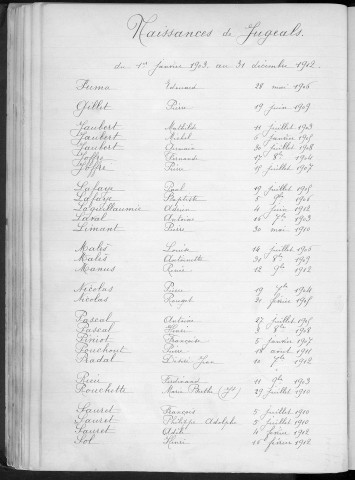 Naissances de Jugeals.
du 1er janvier 1903 au 31 décembre 1912.
Fuma Edouard 28 mai 1906
Gillet Pierre 19 juin 1909
Jaubert Mathilde 11 juillet 1903
Jaubert Michel 5 janvier 1905
Jaubert 30 juillet 1908
Joffre Fernand 17 8bre 1904
Joffre Pierre 19 juillet 1907
Lafaye Paul 19 juillet 1905
Lafaye Baptiste 5 9bre 1906
Laguillaumie 4 juin 1902
Laval Antoine 16 7bre 1903
Limant Pierre 30 mai 1910
Malès Louis 14 juillet 1906
Malès Antoinette 31 8bre 1909
Manus René 12 9bre 1912
Nicolas Pierre 19 7bre 1904
Nicolas 21 février 1905
Pascal Antoine 17 juillet 1905
Pascal Henri 3 8bre 1908
Pinot 5 janvier 1907
Pouchout Pierre 18 août 1911
Pradal Jean 10 7bre 1912
Ferdinand 11 9bre 1903
Rouchette Marie 29 juillet 1910
Sauret François 5 juillet 1910
Sauret Philippe Adolphe 5 juillet 1910
Sauret 4 février 1912
Sol Henri 15 février 1912